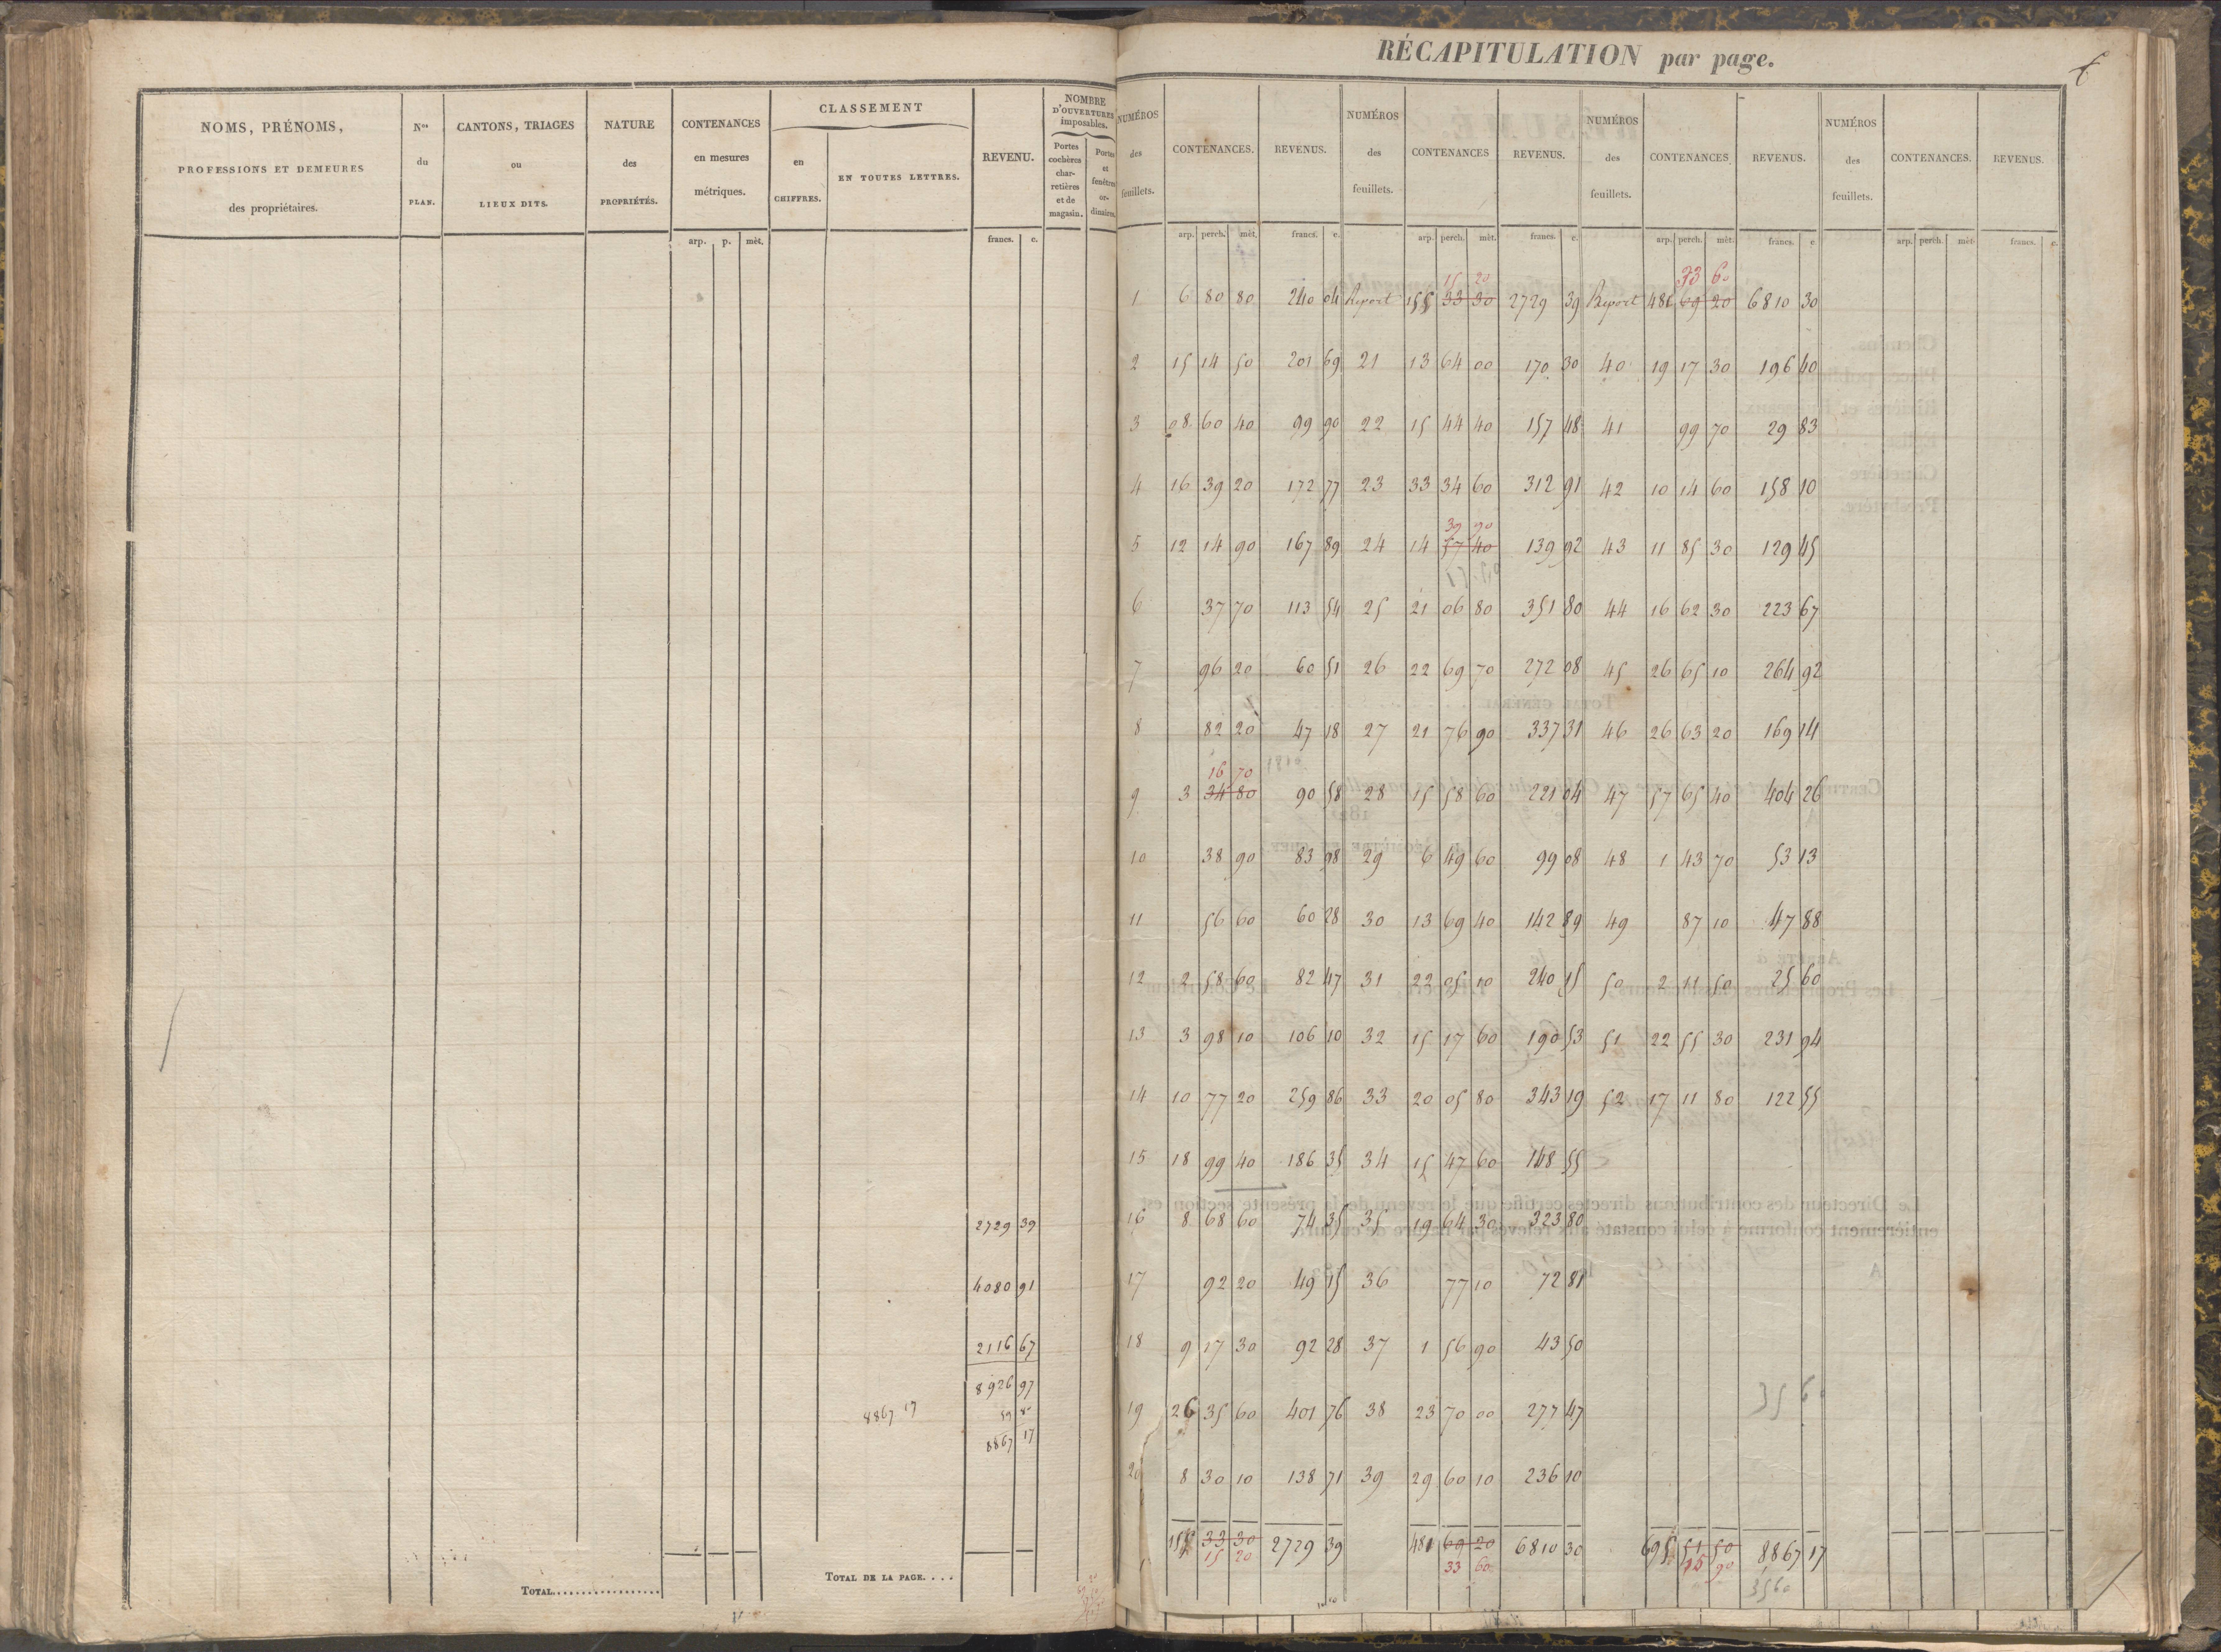 NOMS, PRÉNOMS,
PROFESSIONS ET DEMEURES
des propriétaires.
Nos
du
PLAN.
CANTONS, TRIAGES
ou
LIEUX DITS.
NATURE
des
PROPRIÉTÉS.
CONTENANCES
en mesures
métriques.
CLASSEMENT
en
CHIFFRES.
EN TOUTES LETTRES.
REVENU.
NOMBRE
D'OUVERTURES
imposables.
Portes
cochères
char-
retières
et de
magasin.
Portes
et
fenêtres
or-
dinaires.
arp. p. mèt. francs. c.
2729 39
4080 91
2116 67
8926 97
8867 17 59 80
8867 17
TOTAL..................
TOTAL DE LA PAGE....
RÉCAPITULATION par page.
NUMÉROS des feuillets. CONTENANCES. REVENUS. NUMÉROS des feuillets. CONTENANCES REVENUS. NUMÉROS des feuillets. CONTENANCES REVENUS. NUMÉROS des feuillets. CONTENANCES. REVENUS.
arp. perch. mèt. francs. c. arp. perch. mèt. francs. c. arp. perch. mèt. francs. c. arp. perch. mèt. francs. c.
15 20 33 60
1 6 80 80 240 04 Report 155 33 30 2729 39 Report 481 69 20 6810 30
2 15 14 50 201 69 21 13 64 00 170 30 40 19 17 30 196 40
3 08 60 40 99 90 22 15 44 40 157 48 41 99 70 29 83
4 16 39 20 172 77 23 33 34 60 312 91 42 10 14 60 158 10
39 90
5 12 14 90 167 89 24 14 57 40 139 92 43 11 85 30 129 45
6 37 70 113 54 25 21 06 80 351 80 44 16 62 30 223 67
7 96 20 60 51 26 22 69 70 272 08 45 26 65 10 264 92
8 82 20 47 18 27 21 76 90 337 31 46 26 63 20 169 14
16 70
9 3 34 80 90 58 28 15 58 60 221 04 47 57 65 40 404 26
10 38 90 83 98 29 6 49 60 99 08 48 1 43 70 53 13
11 56 60 60 28 30 13 69 40 142 89 49 87 10 47 88
12 2 58 60 82 47 31 22 05 10 240 15 50 2 11 50 25 60
13 3 98 10 106 10 32 15 17 60 190 53 51 22 55 30 231 94
14 10 77 20 259 86 33 20 05 80 343 19 52 17 11 80 122 55
15 18 99 40 186 35 34 15 47 60 148 55
16 8 68 60 74 35 35 19 64 30 323 80
17 92 20 49 15 36 77 10 72 81
18 9 17 30 92 28 37 1 56 90 43 50
35 6
19 26 35 60 401 76 38 23 70 00 277 47
20 8 30 10 138 71 39 29 60 10 236 10
155 33 30 2729 39 481 69 20 6810 30 695 51 50 8867 17
15 20 33 60 15 90
3560